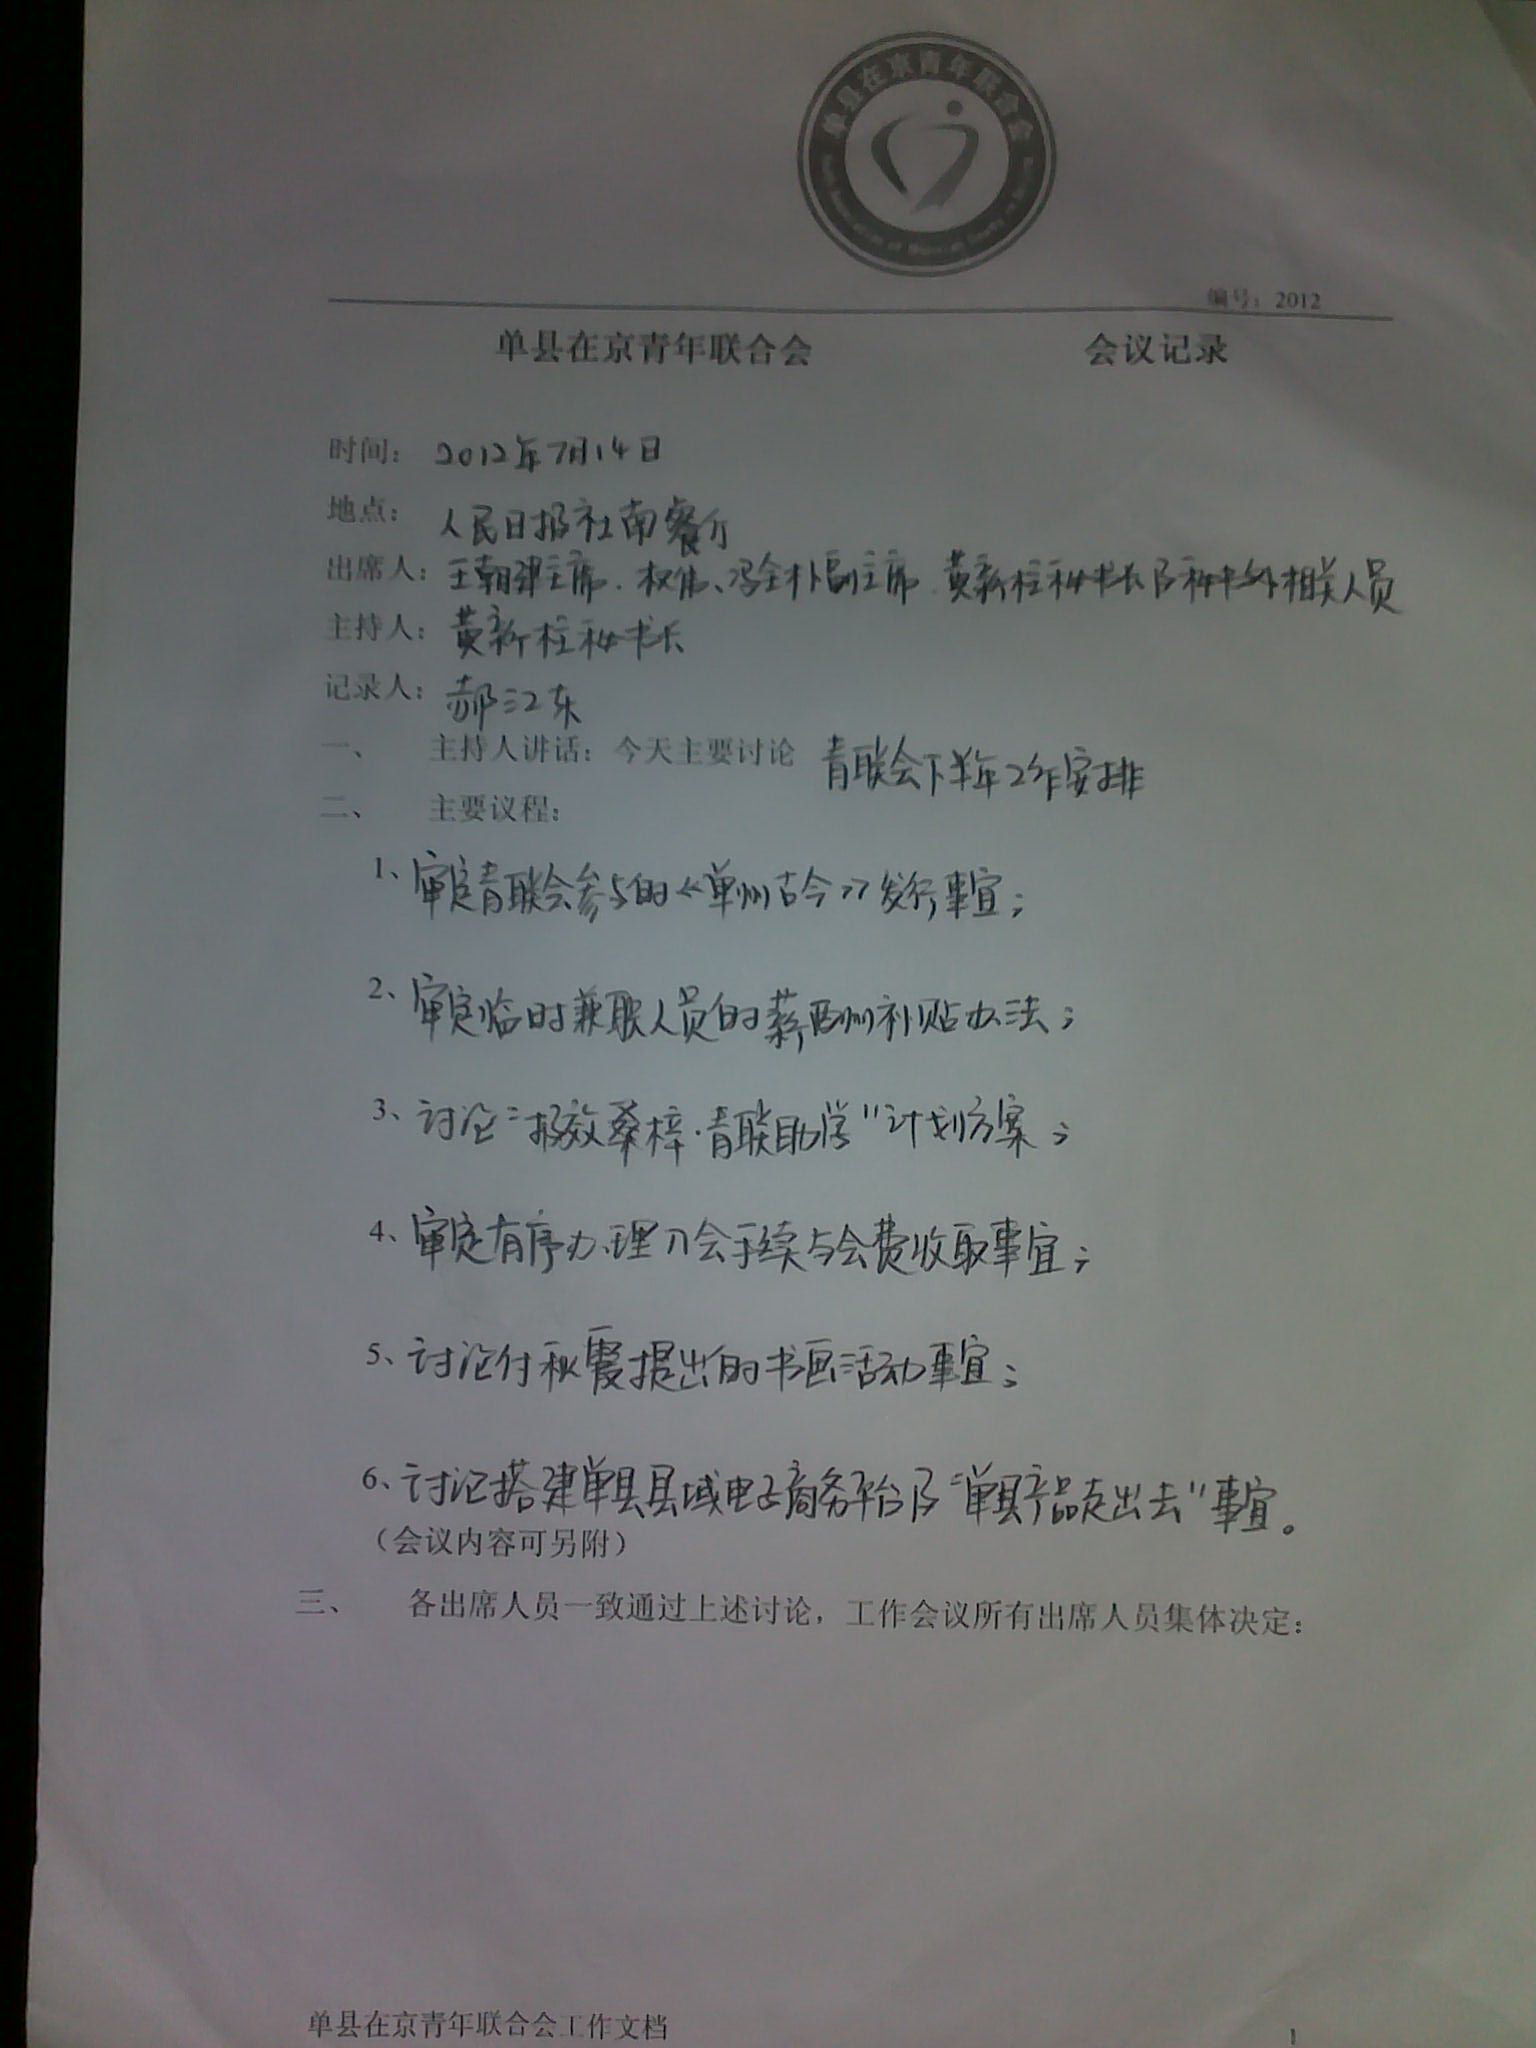 单县在京青年联合会
编号：2012
单县在京青年联合会 会议记录
时间： 2012年7月14日
地点： 人民日报社南餐厅
出席人： 王朝建主席、权伟、冯全朴副主席、黄新柱秘书长及秘书处相关人员
主持人： 黄新柱秘书长
记录人： 郝江东
一、 主持人讲话：今天主要讨论 青联会下半年工作安排
二、 主要议程：
1、审定青联会参与的《单州古今》发行事宜；
2、审定临时兼职人员的薪酬补贴办法；
3、讨论“报效桑梓·青联助学”计划方案；
4、审定有序办理入会手续与会费收取事宜；
5、讨论付秋霞提出的书画活动事宜；
6、讨论搭建单县县域电子商务平台及“单县产品走出去”事宜。
（会议内容可另附）
三、 各出席人员一致通过上述讨论，工作会议所有出席人员集体决定：
单县在京青年联合会工作文档 1